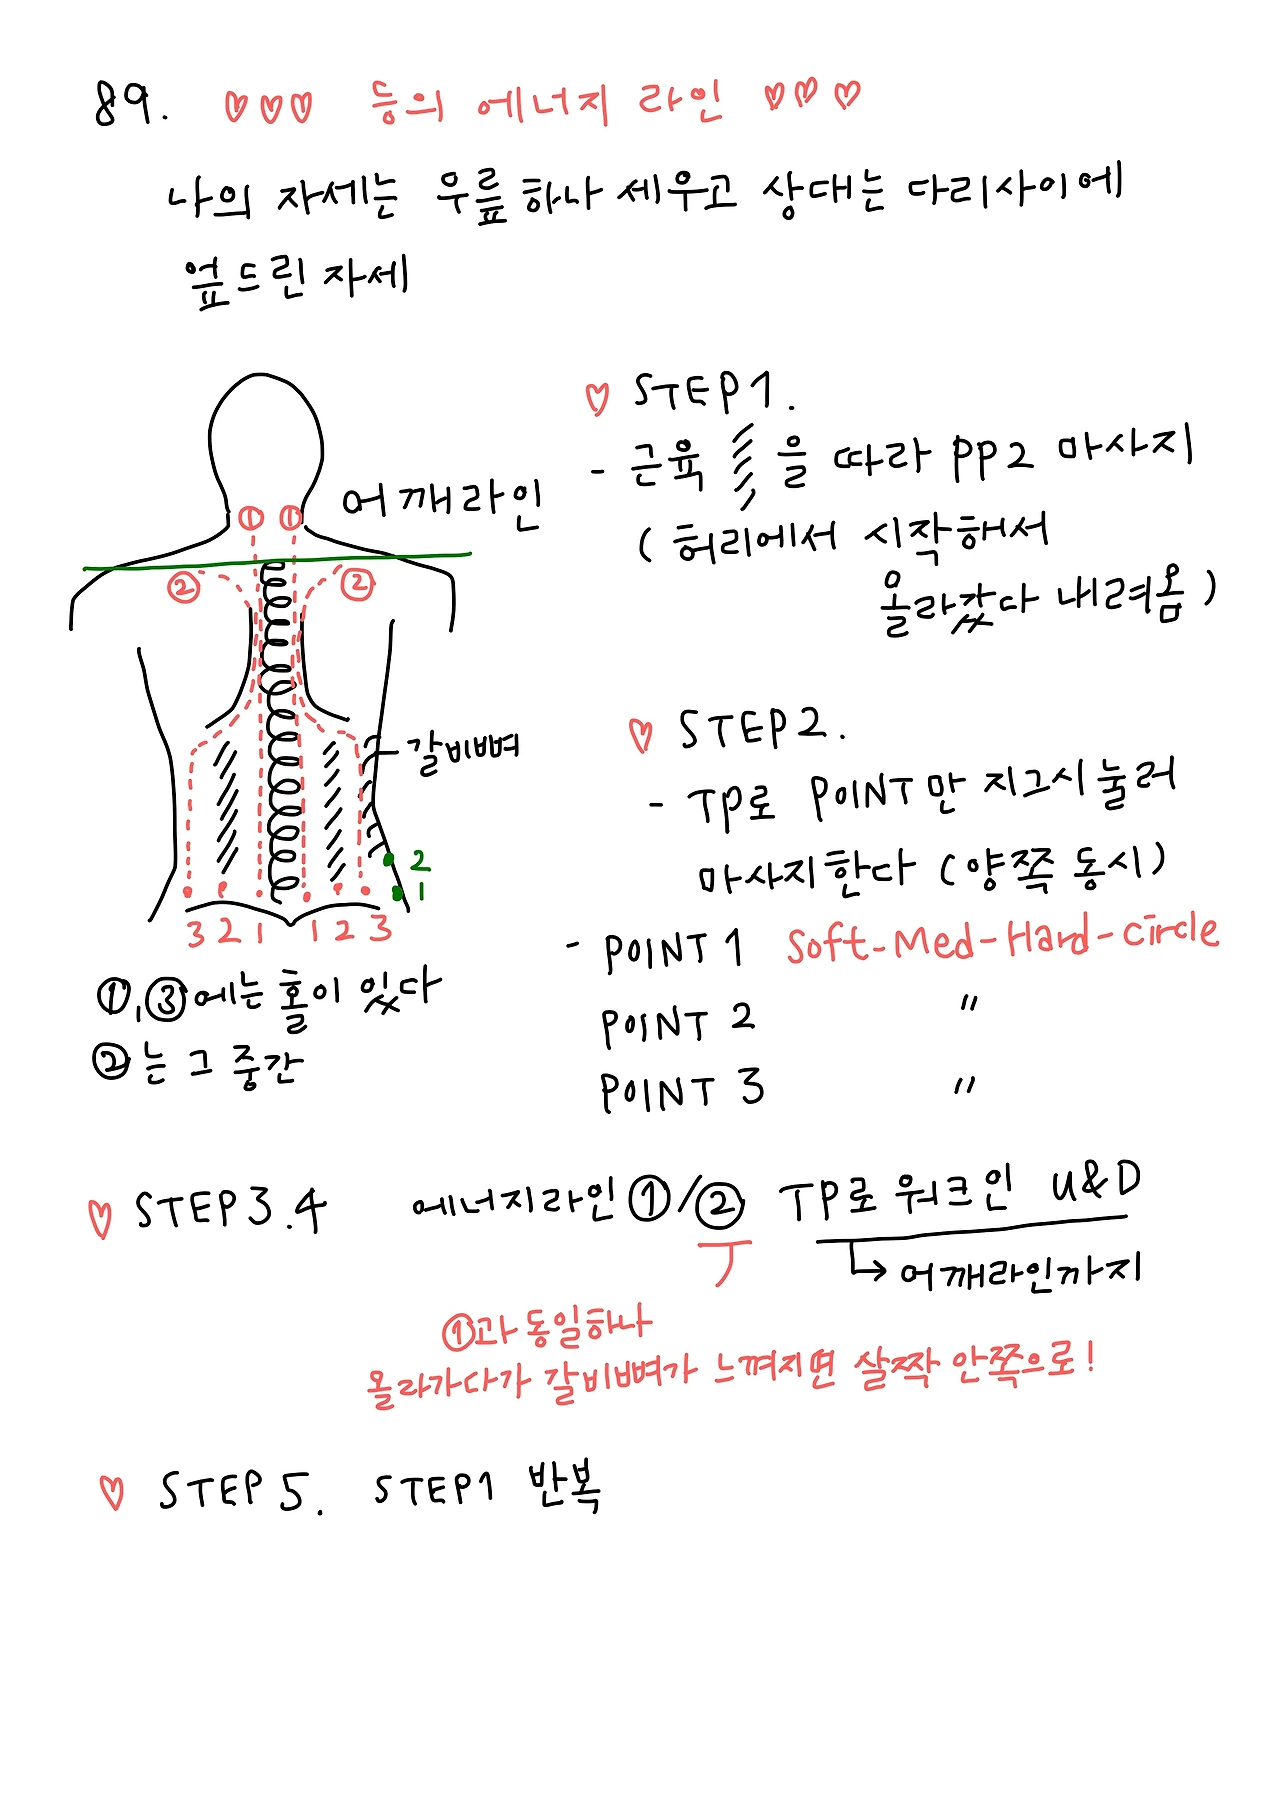 89. ♡♡♡ 등의 에너지 라인 ♡♡♡
나의 자세는 무릎 하나 세우고 상대는 다리사이에
엎드린 자세
어깨라인
① ①
② ②
갈비뼈
2
1
3 2 1 1 2 3
①,③에는 홀이 있다
②는 그 중간
♡ STEP 1.
- 근육 을 따라 PP2 마사지
(허리에서 시작해서
올라갔다 내려옴)
♡ STEP 2.
- TP로 POINT만 지그시 눌러
마사지한다 (양쪽 동시)
- POINT 1 Soft-Med-Hard-Circle
POINT 2 〃
POINT 3 〃
♡ STEP 3.4 에너지라인 ①/② TP로 워크인 U&D
↳ 어깨라인까지
①과 동일하나
올라가다가 갈비뼈가 느껴지면 살짝 안쪽으로!
♡ STEP 5. STEP1 반복